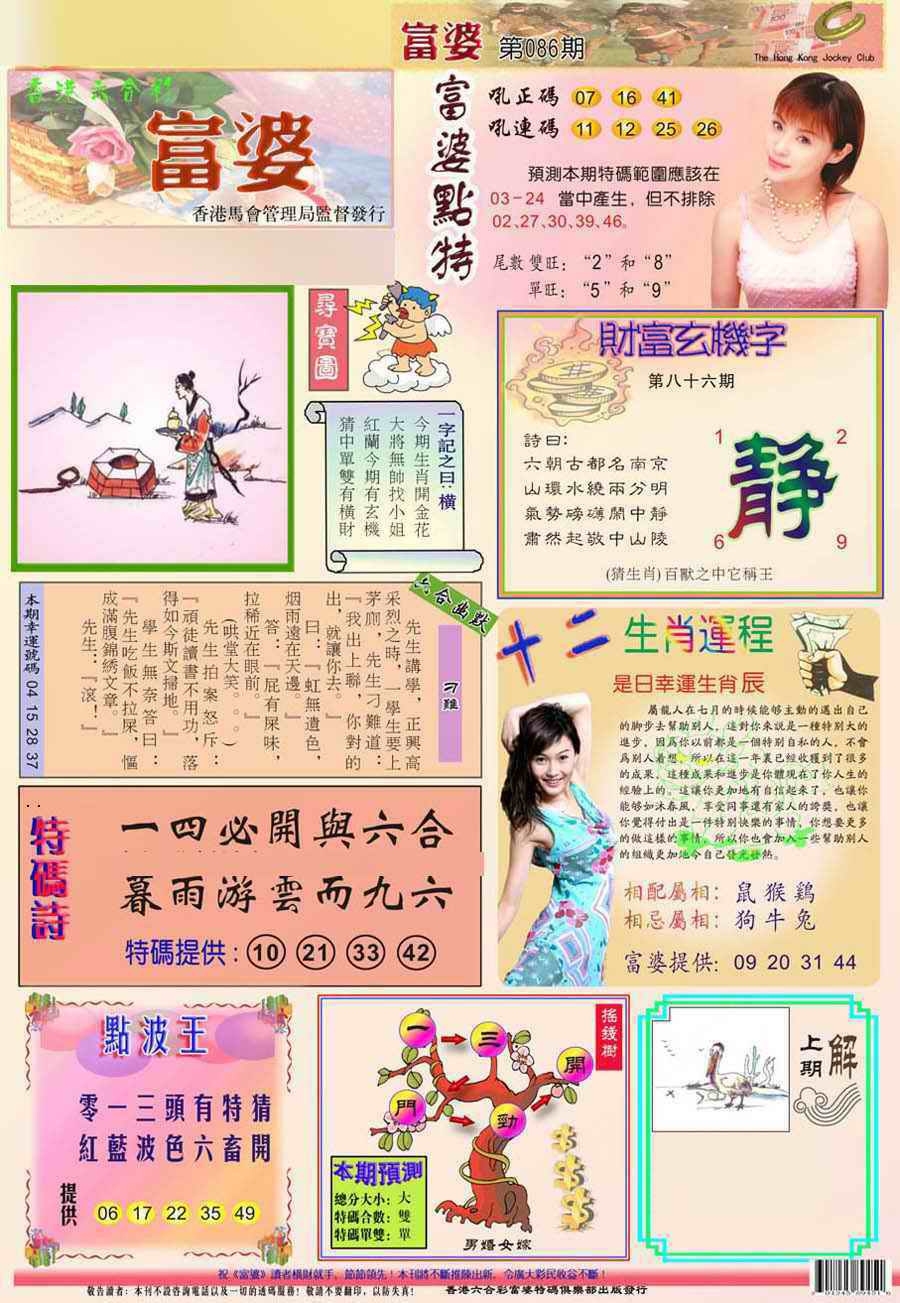 富婆 第086期
The Hong Kong Jockey Club
香港六合彩
富婆
香港馬會管理局監督發行
富婆點特
吼正碼 07 16 41
吼連碼 11 12 25 26
預測本期特碼範圍應該在
03-24 當中產生，但不排除
02,27,30,39,46。
尾數雙旺：“2”和“8”
單旺：“5”和“9”
尋寶圖
一字記之曰：橫
今期生肖開金花
大將無帥找小姐
紅蘭今期有玄機
猜中單雙有橫財
財富玄機字
第八十六期
詩曰：
六朝古都名南京
山環水繞兩分明
氣勢磅礴鬧中靜
肅然起敬中山陵
1 2
静
6 9
(猜生肖)百獸之中它稱王
六合幽默
刁難
先生講學，正興高
采烈之時，一學生要上
茅廁，先生刁難道：
『我出上聯，你對的
出，就讓你去。』
曰：『虹無遺色，
烟雨遠在天邊。』
答：『屁有屎味，
拉稀近在眼前。』
(哄堂大笑。。。)
先生拍案怒斥：
『頑徒讀書不用功，落
得如今斯文掃地。』
學生無奈答曰：
『先生吃飯不拉屎，
成滿腹錦綉文章。』
先生：『滾！』
本期幸運號碼 04 15 28 37
十二生肖運程
是日幸運生肖辰
屬龍人在七月的時候能够主動的邁出自己
的脚步去幫助别人，這對你來説是一種特别大的
進步，因爲你以前都是一個特别自私的人，不會
爲别人着想，所以在這一年裏已經收獲到了很多
的成果，這種成果和進步是你體現在了你人生的
經驗上的。這讓你更加地有自信起來了，也讓你
能够如沐春風，享受同事還有家人的誇奬，也讓
你覺得付出是一件特别快樂的事情，你想要更多
的做這樣的事情，所以你也會加入一些幫助别人
的組織更加地令自己發光發熱。
相配屬相：鼠猴鷄
相忌屬相：狗牛兔
富婆提供：09 20 31 44
特碼詩
一四必開與六合
暮雨游雲而九六
特碼提供：10 21 33 42
點波王
零一三頭有特猜
紅藍波色六畜開
提供 06 17 22 35 49
搖錢樹
一 三 開
門 勁
本期預測
總分大小：大
特碼合數：雙
特碼單雙：單
男婚女嫁
上期解
祝《富婆》讀者横財就手，節節領先！本刊將不斷推陳出新，令廣大彩民收益不斷！
敬告讀者：本刊不設咨詢電話以及一切的透碼服務！敬請不要翻印，以防失真！
香港六合彩富婆特碼俱樂部出版發行